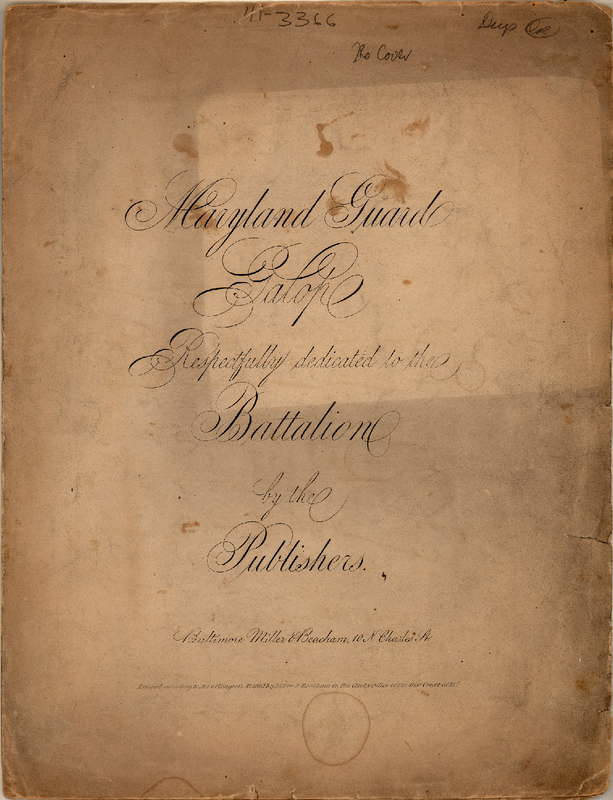 41-3366
Dup
No Cover
Maryland Guard
Galop
Respectfully dedicated to the
Battalion
by the
Publishers.
Baltimore Miller & Beacham, 10 N. Charles St
Entered according to Act of Congress by Miller & Beacham in the Clerks Office of the Dist Court of Md